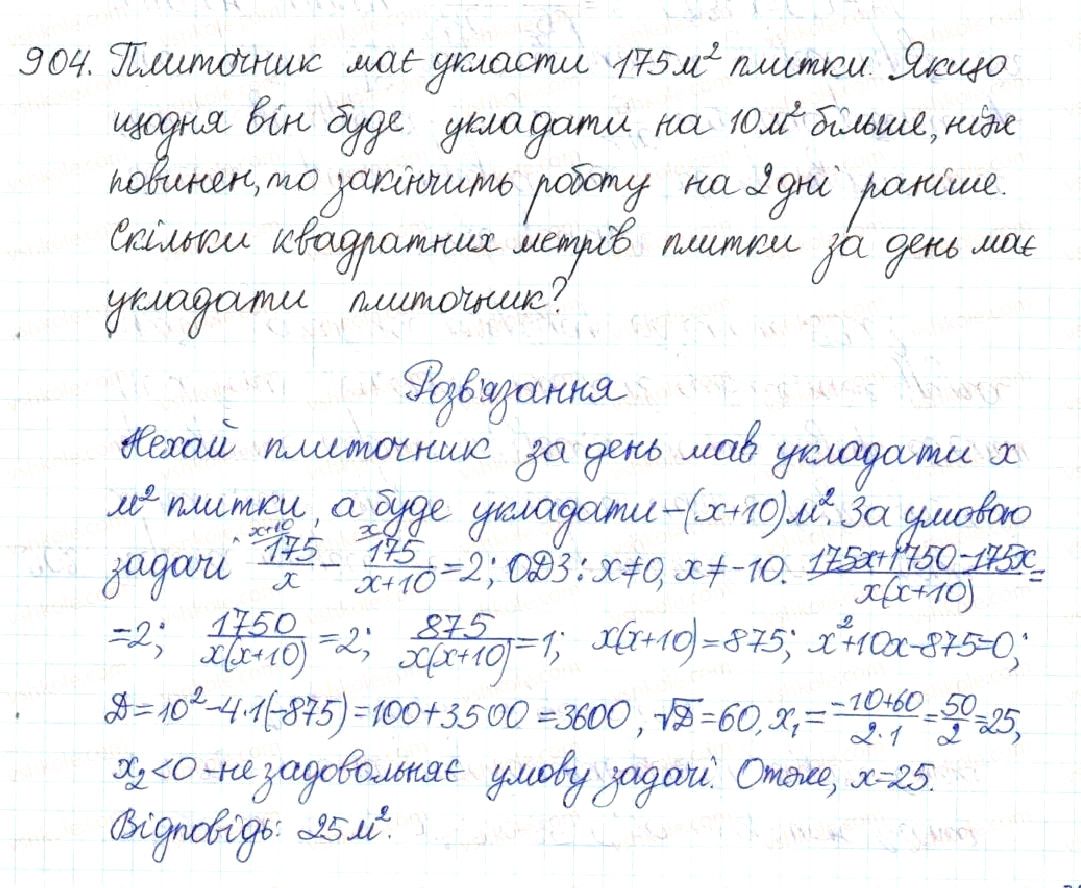 904. Плиточник має укласти 175 м² плитки. Якщо
щодня він буде укладати на 10 м² більше, ніж
повинен, то закінчить роботу на 2 дні раніше.
Скільки квадратних метрів плитки за день має
укладати плиточник?
Розв'язання
Нехай плиточник за день мав укладати x
м² плитки, а буде укладати – (x+10) м². За умовою
задачі ˣ⁺¹⁰175/x – ˣ175/(x+10) = 2; ОДЗ: x≠0, x≠-10. (175x+1750-175x)/(x(x+10)) =
=2; 1750/(x(x+10)) = 2; 875/(x(x+10)) = 1; x(x+10) = 875; x²+10x-875=0;
D = 10²-4·1(-875) = 100+3500 = 3600, √D = 60. x₁ = (-10+60)/(2·1) = 50/2 = 25,
x₂<0 – не задовольняє умову задачі. Отже, x=25.
Відповідь: 25 м².